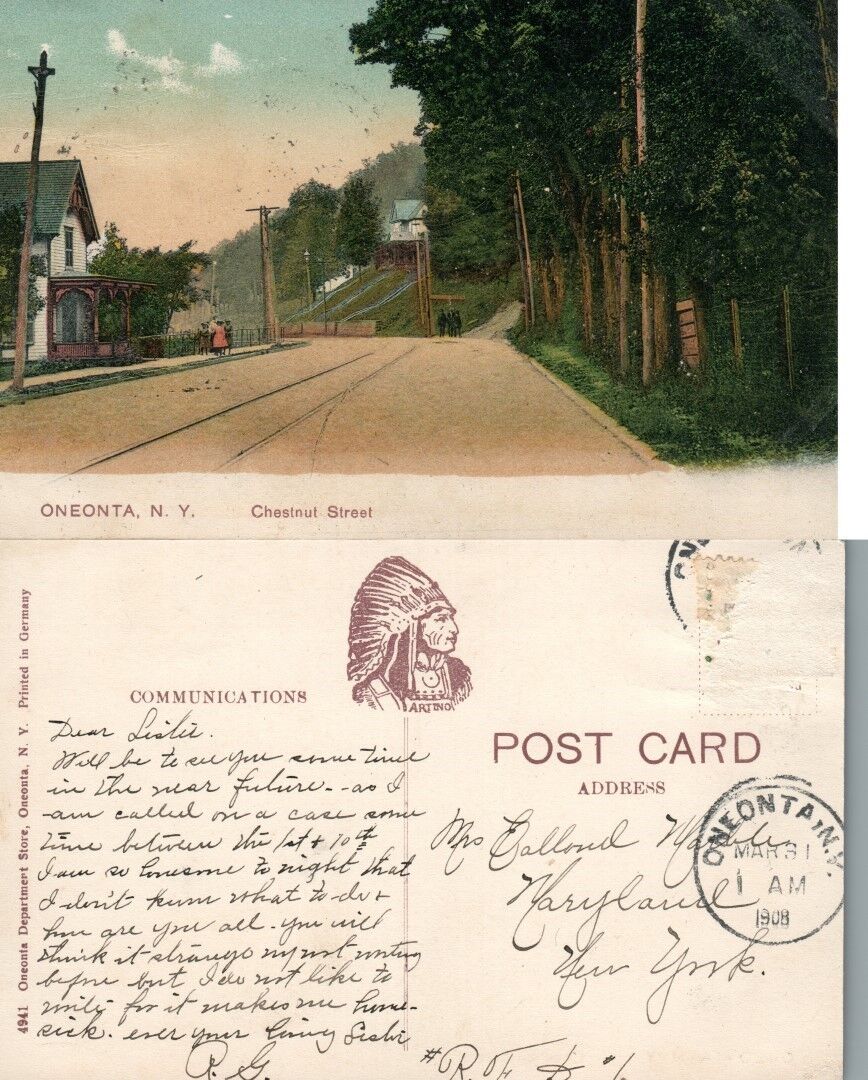 ONEONTA, N. Y. Chestnut Street
4941 Oneonta Department Store, Oneonta, N. Y. Printed in Germany
COMMUNICATIONS
ARTINO
POST CARD
ADDRESS
ONEONTA, N.Y.
MAR 31
1 AM
1908
Dear Sister.
Will be to see you some time
in the near future - as I
am called on a case some
time between the 1st + 10th
I am so lonesome to night that
I don't know what to do +
how are you all - you will
think it strange my not writing
before but I do not like to
write for it makes me home-
sick. ever your loving Sister
R. G.
Mrs
Maryland
New York.
# R. F. D. #1